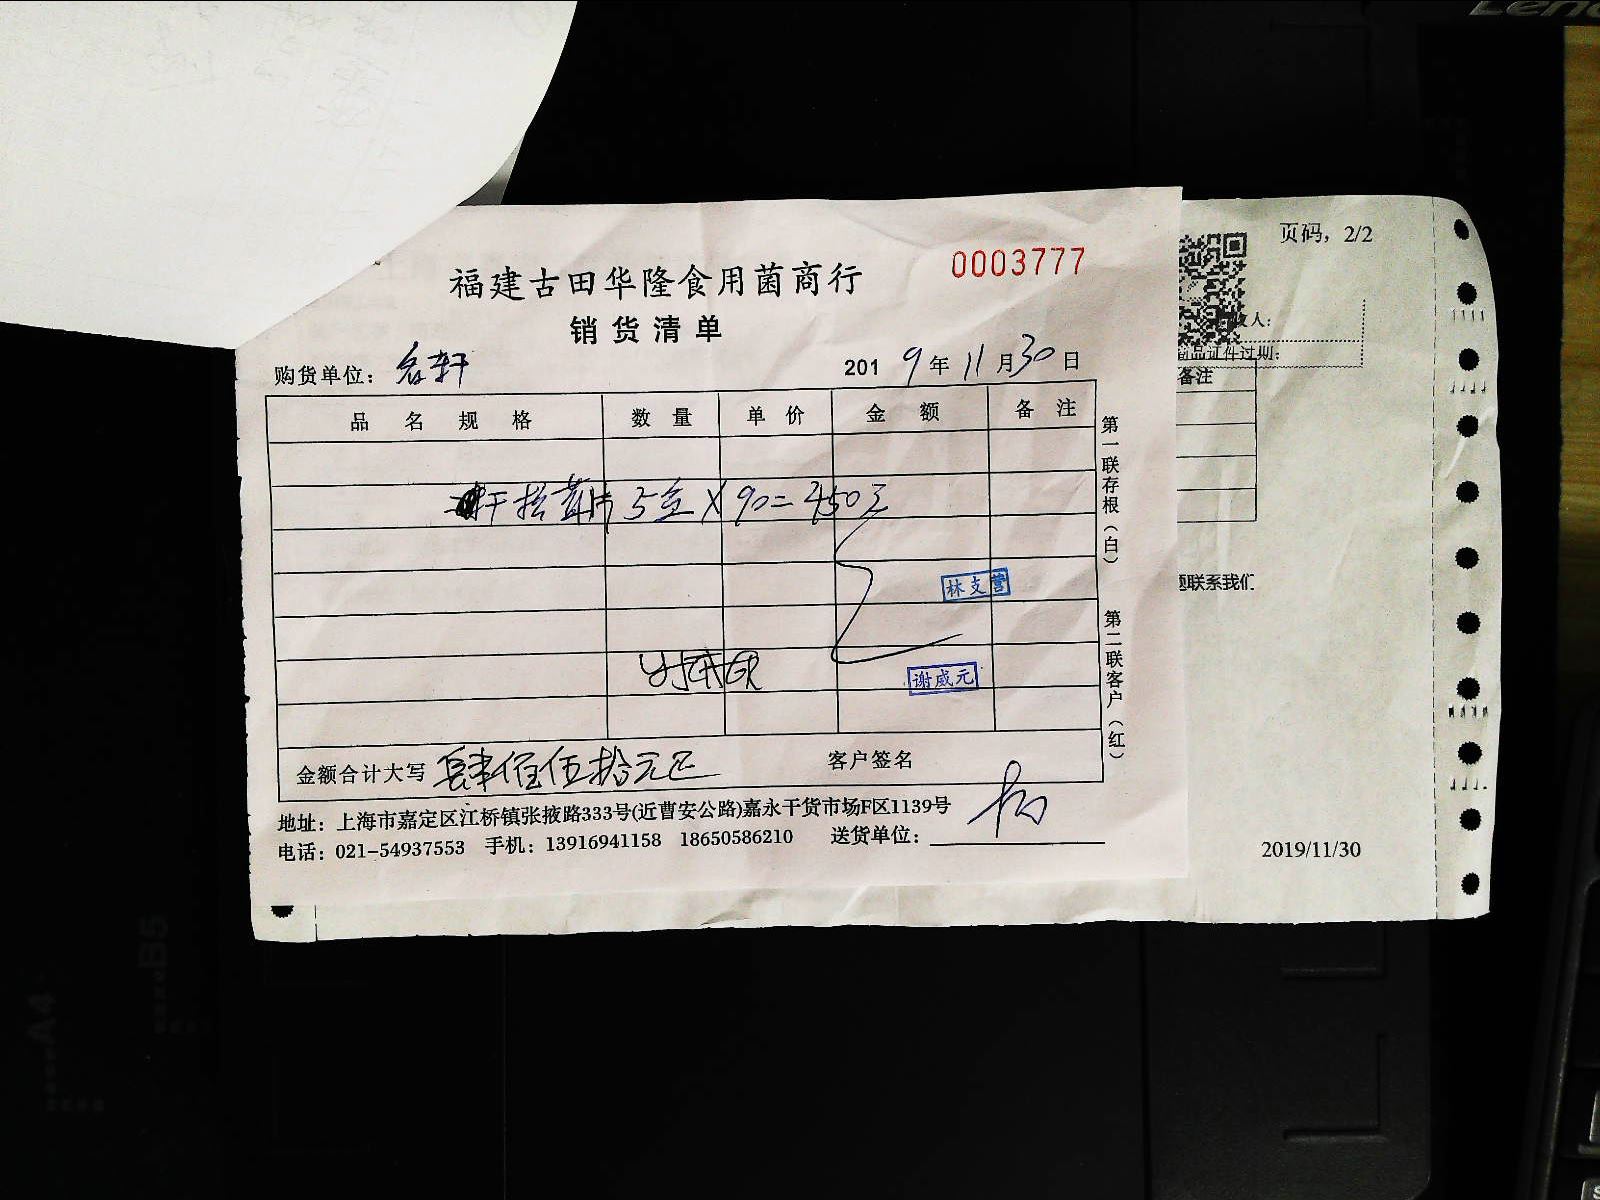 页码，2/2
0003777
福建古田华隆食用菌商行
销货清单
购货单位：名轩
2019年11月30日
品名规格 数量 单价 金额 备注
干松茸片 5 X 90=450元
林支营
谢威元
金额合计大写 肆佰伍拾元正 客户签名
地址：上海市嘉定区江桥镇张掖路333号(近曹安公路)嘉永干货市场F区1139号
电话：021-54937553 手机：13916941158 18650586210 送货单位：
第一联存根（白）
第二联客户（红）
收人：
制品证件过期：
备注
题联系我们
2019/11/30
A4
B5
Leno